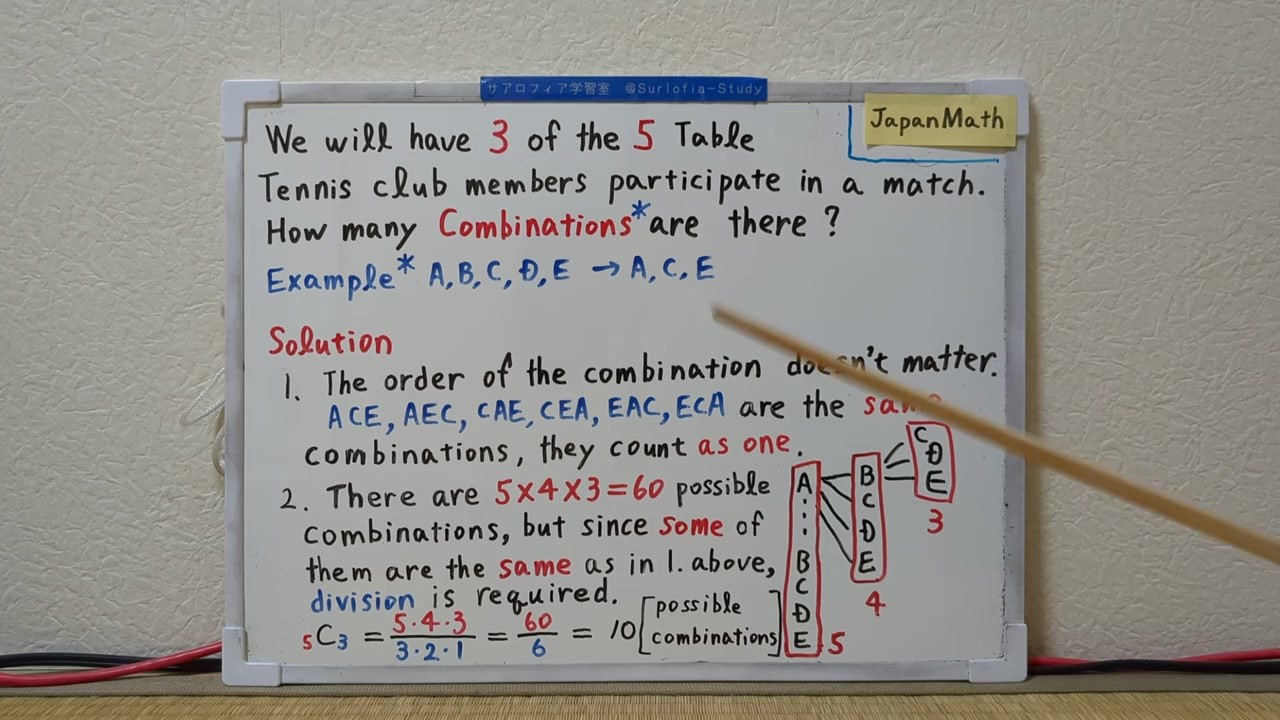 サアロフィア学習室 @Surlofia-Study
JapanMath
We will have 3 of the 5 Table
Tennis club members participate in a match.
How many Combinations* are there ?
Example* A, B, C, D, E → A, C, E
Solution
1. The order of the combination doesn't matter.
ACE, AEC, CAE, CEA, EAC, ECA are the same
combinations, they count as one.
2. There are 5×4×3=60 possible
combinations, but since some of
them are the same as in 1. above,
division is required.
5C3 = 5·4·3/3·2·1 = 60/6 = 10 [possible combinations]
A
⋮
B
C
D
E
5
B
C
D
E
4
C
D
E
3